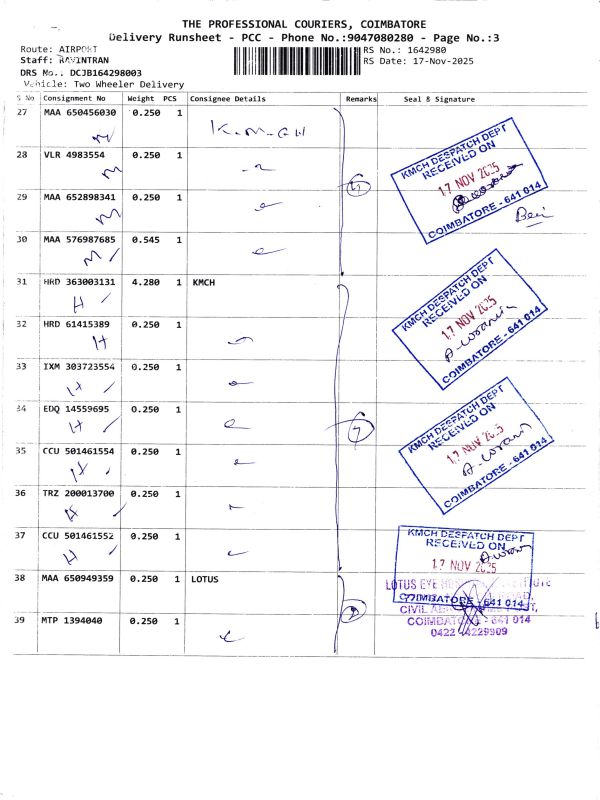 THE PROFESSIONAL COURIERS, COIMBATORE
Delivery Runsheet - PCC - Phone No.:9047080280 - Page No.:3
Route: AIRPORT
RS No.: 1642980
Staff: RAVINTRAN
RS Date: 17-Nov-2025
DRS No.: DCJB164298003
Vehicle: Two Wheeler Delivery
S No Consignment No Weight PCS Consignee Details Remarks Seal & Signature
27 MAA 650456030 0.250 1 K.M.CH
28 VLR 4983554 0.250 1
29 MAA 652898341 0.250 1
30 MAA 576987685 0.545 1
31 HRD 363003131 4.280 1 KMCH
32 HRD 61415389 0.250 1
33 IXM 303723554 0.250 1
34 EDQ 14559695 0.250 1
35 CCU 501461554 0.250 1
36 TRZ 200013700 0.250 1
37 CCU 501461552 0.250 1
38 MAA 650949359 0.250 1 LOTUS
39 MTP 1394040 0.250 1
7
KMCH DESPATCH DEPT
RECEIVED ON
17 NOV 2025
COIMBATORE - 641 014
KMCH DESPATCH DEPT
RECEIVED ON
17 NOV 2025
COIMBATORE - 641 014
KMCH DESPATCH DEPT
RECEIVED ON
17 NOV 2025
COIMBATORE - 641 014
KMCH DESPATCH DEPT
RECEIVED ON
17 NOV 2025
COIMBATORE - 641 014
LOTUS EYE
CIVIL
COIMBATORE - 641 014
0422 4229909